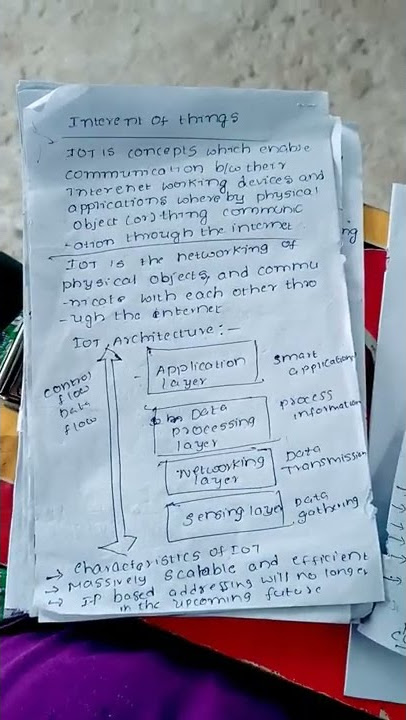 Interent of things
IOT is concepts which enable
communication b/w their
Interenet working devices and
applications where by physical
object (or) thing communic
-ation through the internet
IOT is the networking of
physical objects, and commu
-nicate with each other thro
-ugh the internet
IOT Architecture:-
control
flow
Data
flow
Application
layer
smart
application
Data
processing
layer
process
information
Networking
layer
Data
Transmission
Sensing layer
Data
gathring
→ characteristics of IOT
→ Massively scalable and efficient
→ IP based addressing will no longer
in the upcoming future
ing